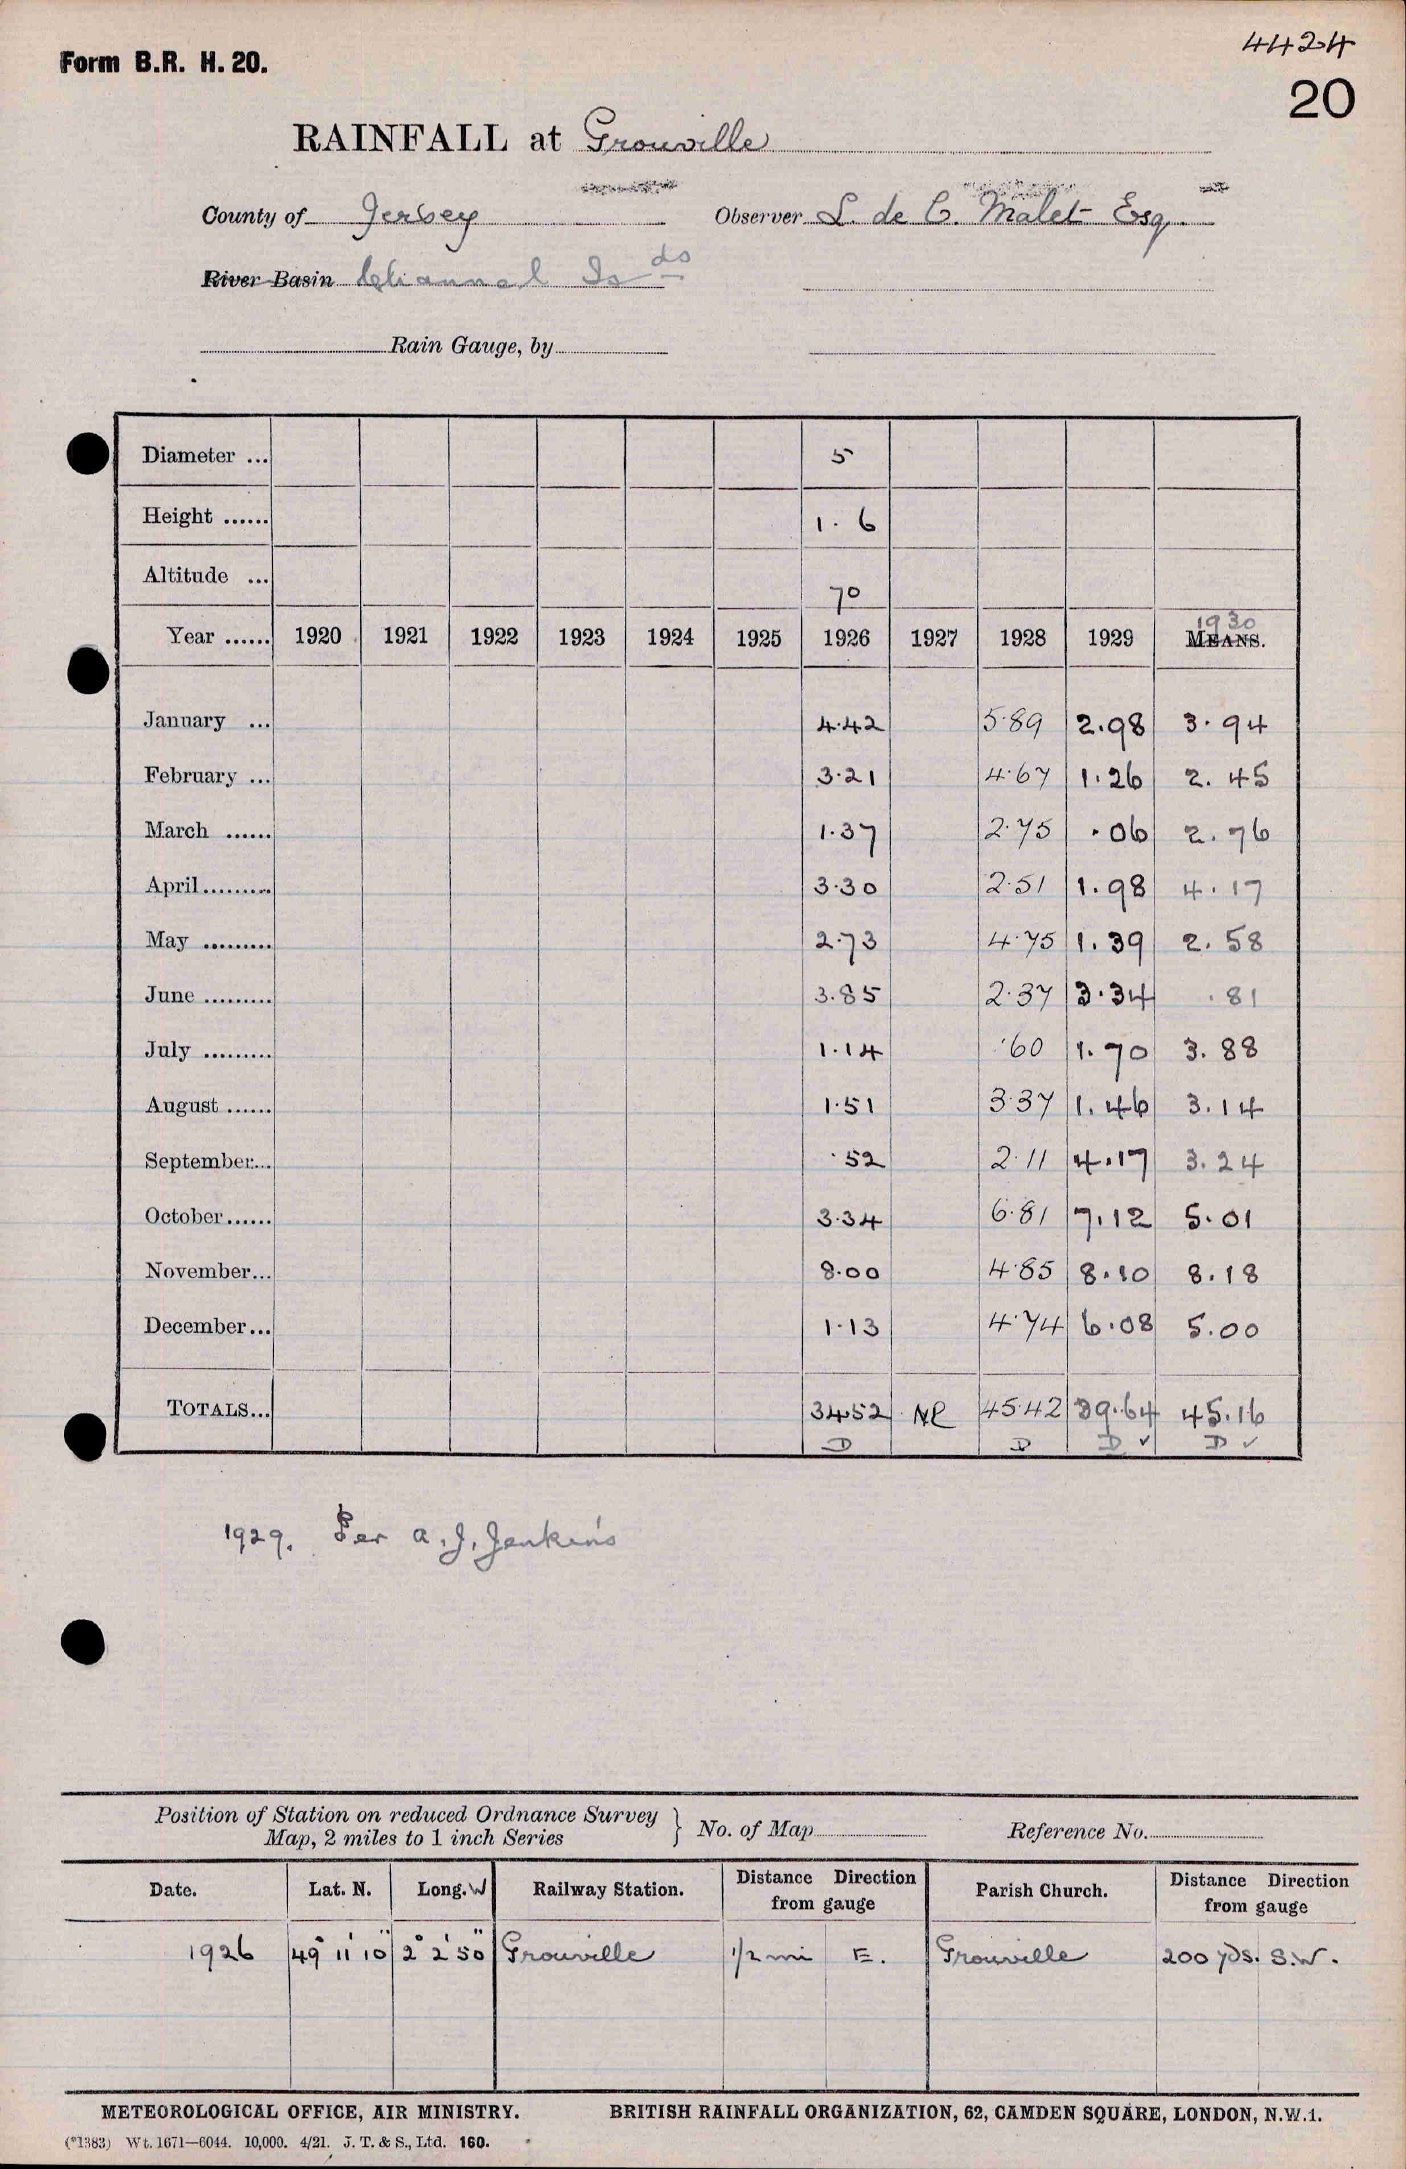 Form B.R. H. 20.
4424
20
RAINFALL at Grouville
County of Jersey Observer L. de C. Malet Esq.
River Basin Channel Is ds
Rain Gauge, by
Diameter ... 5
Height ...... 1. 6
Altitude ... 70
Year ...... 1920 1921 1922 1923 1924 1925 1926 1927 1928 1929 MEANS. 1930
January ... 4.42 5.89 2.98 3.94
February ... 3.21 4.67 1.26 2.45
March ...... 1.37 2.75 .06 2.76
April......... 3.30 2.51 1.98 4.17
May ......... 2.73 4.75 1.39 2.58
June ......... 3.85 2.37 3.34 .81
July ......... 1.14 .60 1.70 3.88
August ...... 1.51 3.37 1.46 3.14
September... .52 2.11 4.17 3.24
October...... 3.34 6.81 7.12 5.01
November... 8.00 4.85 8.10 8.18
December... 1.13 4.74 6.08 5.00
TOTALS... 34.52 NR 45.42 39.64 45.16
D D D ✓ D ✓
1929. Per A. J. Jenkins
Position of Station on reduced Ordnance Survey
Map, 2 miles to 1 inch Series } No. of Map Reference No.
Date. Lat. N. Long. W Railway Station. Distance Direction from gauge Parish Church. Distance Direction from gauge
1926 49° 11' 10" 2° 2' 50" Grouville 1/2 mi E. Grouville 200 yds. S.W.
METEOROLOGICAL OFFICE, AIR MINISTRY. BRITISH RAINFALL ORGANIZATION, 62, CAMDEN SQUARE, LONDON, N.W.1.
(*1383) Wt. 1671—6044. 10,000. 4/21. J. T. & S., Ltd. 160.